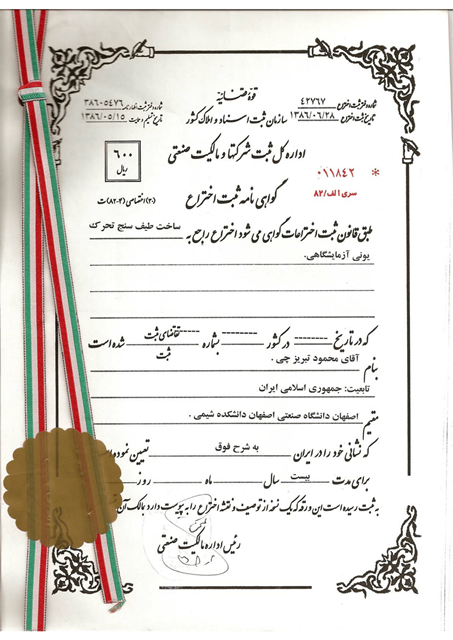 قوهٔ قضائیه
سازمان ثبت اسناد و املاک کشور
شماره و دفتر ثبت اختراع ۴۲۷۶۷
تاریخ ثبت اختراع ۱۳۸۶/۰۶/۲۸
شماره و دفتر ثبت اظهارنامه ۳۸۶۰۵۴۷۶
تاریخ تسلیم ۱۳۸۶/۰۵/۱۵
اداره کل ثبت شرکتها و مالکیت صنعتی
۶۰۰
ریال
* ۰۱۱۸۴۲
سری الف/۸۲
گواهی نامه ثبت اختراع
(۳۰) اختصاصی (۴-۸۲) ث
طبق قانون ثبت اختراعات گواهی می شود اختراع راجع به ساخت طیف سنج تحرک
یونی آزمایشگاهی.
که در تاریخ -------- در کشور -------- بشماره ----- تقاضای ثبت ----- شده است
ثبت
بنام آقای محمود تبریز چی.
تابعیت: جمهوری اسلامی ایران
مقیم اصفهان دانشگاه صنعتی اصفهان دانشکده شیمی.
که نشانی خود را در ایران به شرح فوق تعیین نموده
برای مدت بیست سال ماه روز
به ثبت رسیده است این ورقه که یک نسخه از توصیف و نقشه اختراع را به پیوست دارد بمالک آن
رئیس اداره مالکیت صنعتی